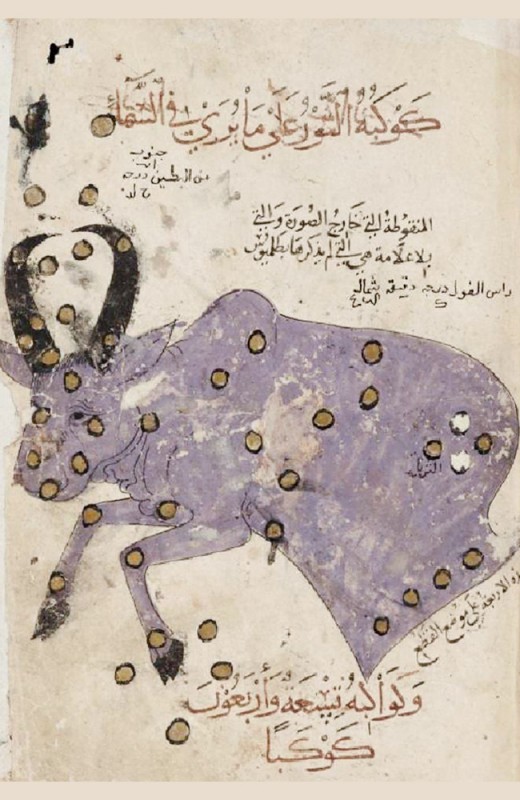 كوكبة الثور على ما يرى في السماء
جنوب
بين البطين درجه
المنقوطة التي خارج الصورة والتي
بلا علامة هي التي لم يذكرها بطلميوس
راس الغول درجه دقيقه شماليه
الثريا
الاربعة على موضع القطع
وكواكبه تسعة وأربعون
كوكبا